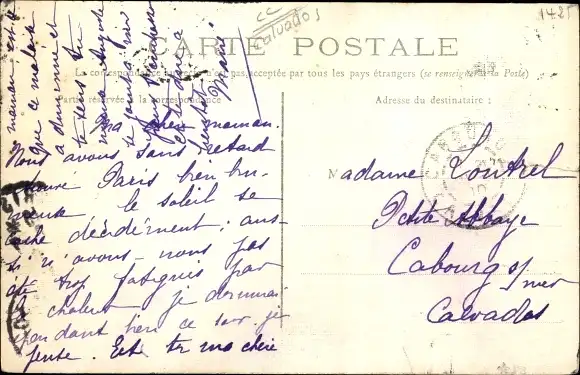 cc
Calvados
1425
CARTE POSTALE
La correspondance au recto n'est pas acceptée par tous les pays étrangers (se renseigner à la Poste)
Partie réservée à la correspondance
Adresse du destinataire :
Ma chère maman.
Nous avons sans retard
trouvé Paris bien bru-
meuse le soleil se
cache décidément; aus-
si n'avons-nous pas
été trop fatigués par
la chaleur je dormirai
pendant bien ce soir je
pense. Est tu ma chère
maman, est-ce
que ce malaise
a diminué et
te sens tu
Madame Loutrel
Petite Abbaye
Cabourg s/ mer
Calvados
CABOURG